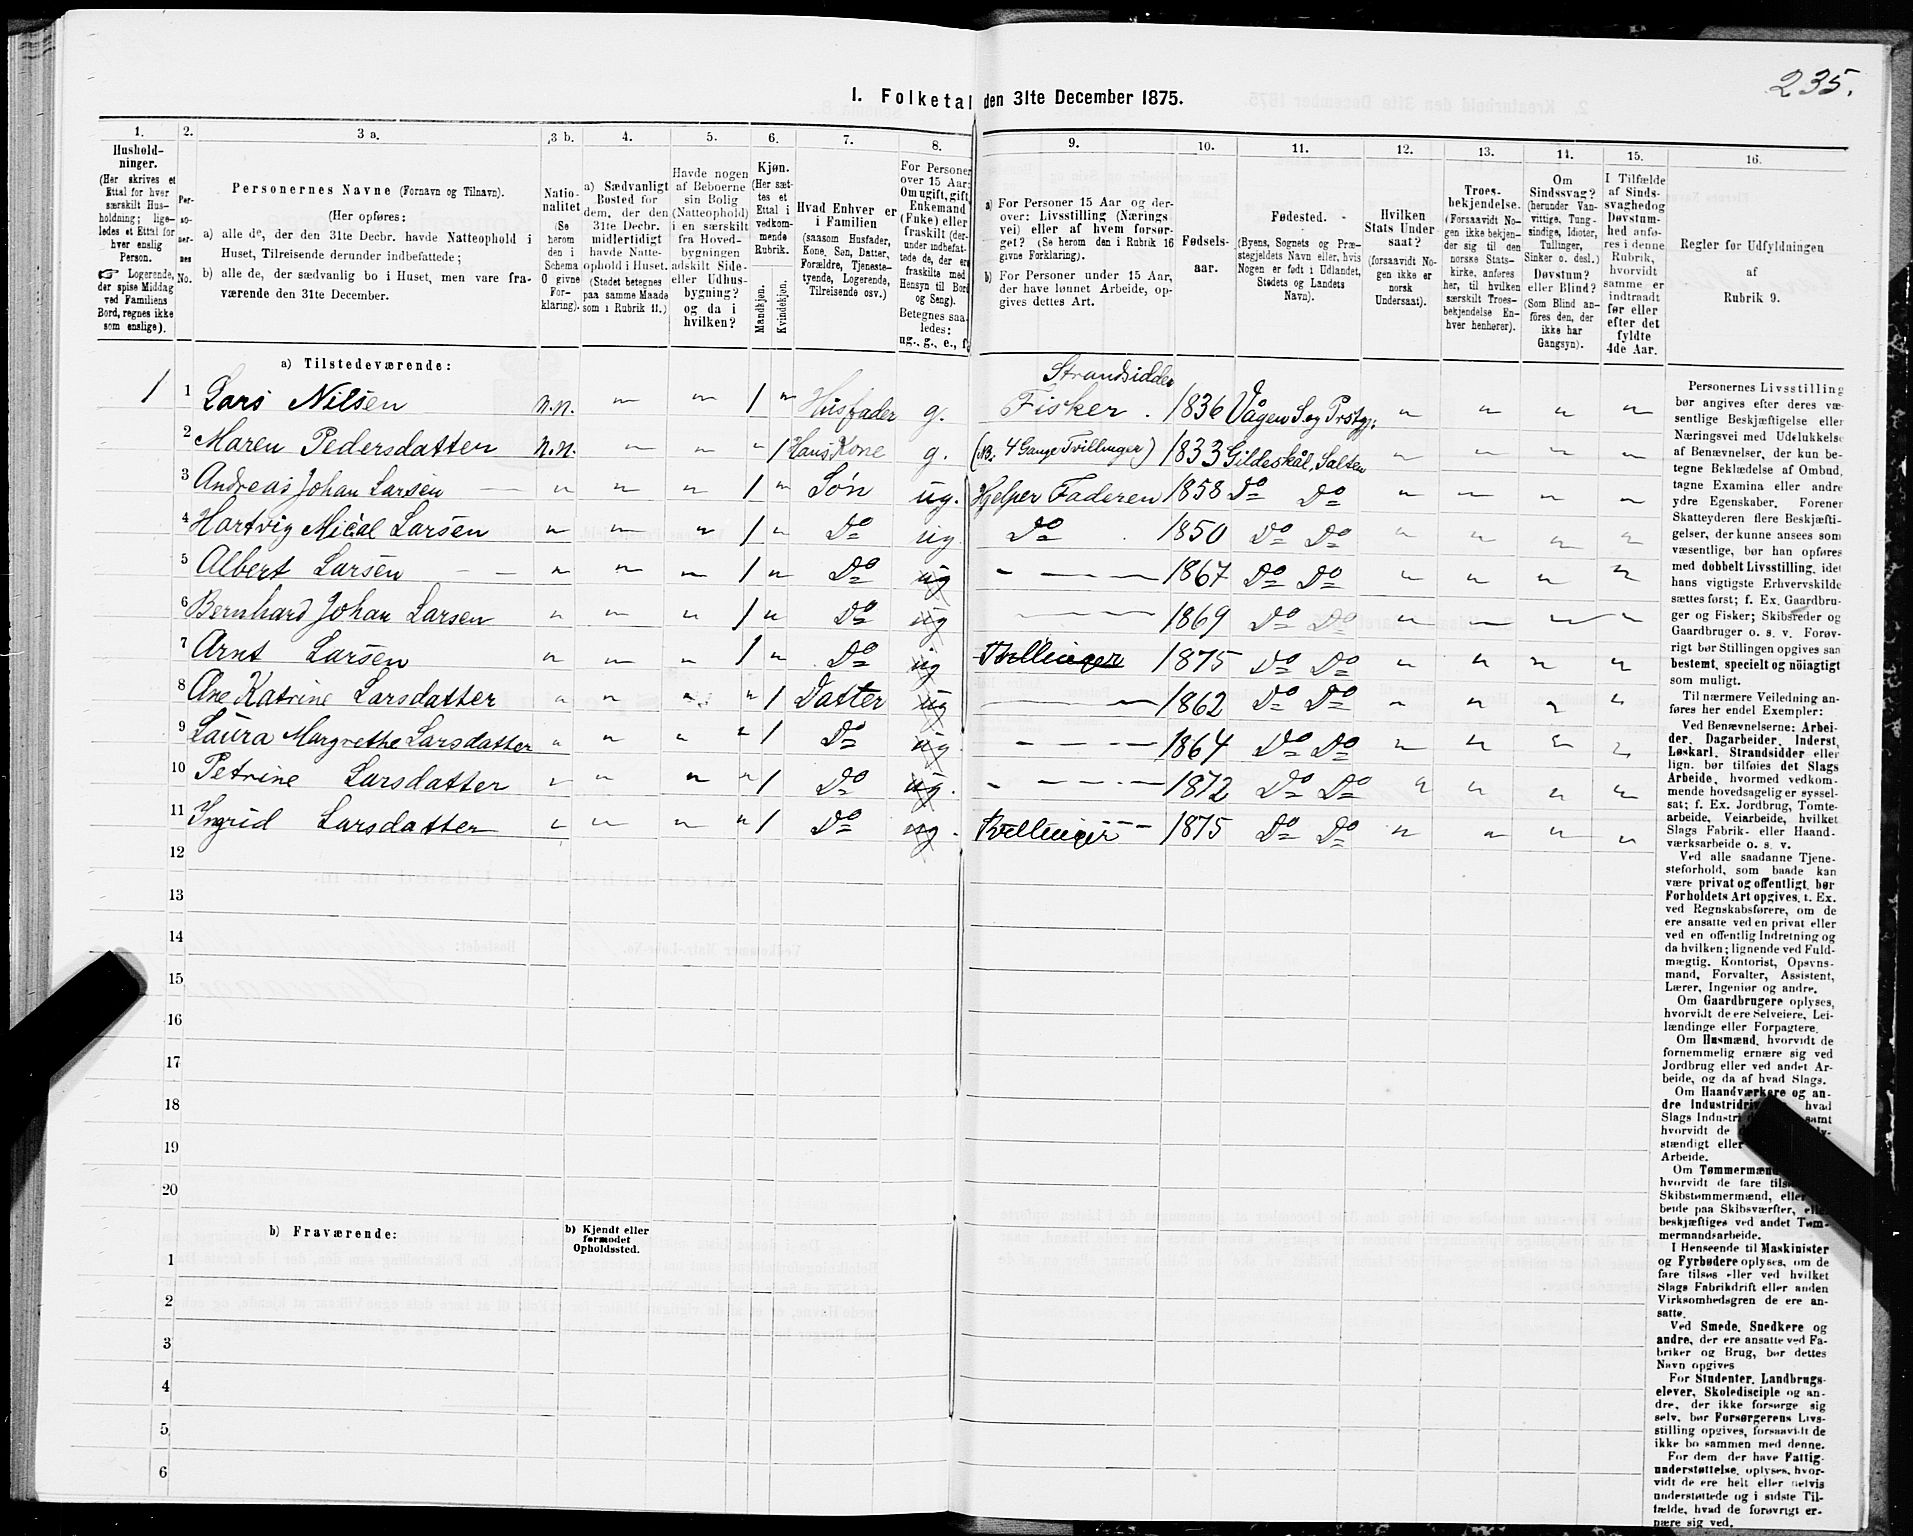 235.
I. Folketal den 31te December 1875.
1. 2. 3 a. 3 b. 4. 5. 6. 7. 8. 9. 10. 11. 12. 13. 14. 15. 16.
Hushold-
ninger.
(Her skrives et
Ettal for hver
særskilt Hus-
holdning; lige-
ledes et Ettal for
hver enslig
Person.
☞ Logerende,
der spise Middag
ved Familiens
Bord, regnes ikke
som enslige).
Per-
so-
ner-
nes
No.
Personernes Navne (Fornavn og Tilnavn).
(Her opføres:
a) alle de, der den 31te Decbr. havde Natteophold i
Huset, Tilreisende derunder indbefattede;
b) alle de, der sædvanlig bo i Huset, men vare fra-
værende den 31te December.
Natio-
nalitet
(Se
herom
den i
Schema
O givne
For-
klaring).
a) Sædvanligt
Bosted for
dem, der den
31te Decbr.
midlertidigt
havde Natte-
ophold i Huset.
(Stedet betegnes
paa samme Maade
som i Rubrik 11.)
Havde nogen
af Beboerne
sin Bolig
(Natteophold)
i en særskilt
fra Hoved-
bygningen
adskilt Side-
eller Udhus-
bygning?
og da i
hvilken?
Kjøn.
(Her sæt-
tes et
Ettal i
vedkom-
mende
Rubrik.
Mandkjøn.
Kvindekjøn.
Hvad Enhver er
i Familien
(saasom Husfader,
Kone, Søn, Datter,
Forældre, Tjeneste-
tyende, Logerende,
Tilreisende osv.)
For Personer
over 15 Aar:
Om ugift, gift,
Enkemand
(Enke) eller
fraskilt (der-
under indbefat-
tede de, der ere
fraskilte med
Hensyn til Bord
og Seng).
Betegnes saa-
ledes:
ug., g., e., f.
a) For Personer 15 Aar og der-
over: Livsstilling (Nærings-
vei) eller af hvem forsør-
get? (Se herom den i Rubrik 16
givne Forklaring).
b) For Personer under 15 Aar,
der have lønnet Arbeide, op-
gives dettes Art.
Fødsels-
aar.
Fødested.
(Byens, Sognets og Præ-
stegjeldets Navn eller, hvis
Nogen er født i Udlandet,
Stedets og Landets
Navn).
Hvilken
Stats Under-
saat?
(forsaavidt No-
gen ikke er
norsk
Undersaat).
Troes-
bekjendelse.
(Forsaavidt No-
gen ikke bekjen-
der sig til den
norske Stats-
kirke, anføres
her, til hvilken
særskilt Troes-
bekjendelse En-
hver henhører).
Om
Sindssvag?
(herunder Van-
vittige, Tung-
sindige, Idioter,
Tullinger,
Sinker o. desl.)
Døvstum?
eller Blind?
(Som Blind an-
føres den, der
ikke har
Gangsyn).
I Tilfælde
af Sinds-
svaghed og
Døvstum-
hed anfø-
res i denne
Rubrik,
hvorvidt
samme er
indtraadt
før eller
efter det
fyldte
4de Aar.
Regler for Udfyldningen
af
Rubrik 9.
a) Tilstedeværende:
Strandsidder
1 1 Lars Nilsen n.n. " " 1 " Husfader g. Fisker. 1836 Vågen S. og Prstgj. " " " "
2 Maren Pedersdatter n.n. " " " 1 Hans Kone g. (NB. 4 Gange Tvillinger) 1833 Gildeskål, Salten " " " "
3 Andreas Johan Larsen " " " 1 " Søn ug. Hjelper Faderen 1858 Do Do " " " "
4 Hartvig Mical Larsen " " " 1 " Do ug Do 1850 Do Do " " " "
5 Albert Larsen " " " 1 " Do ug 1867 Do Do " " " "
6 Bernhard Johan Larsen " " " 1 " Do ug 1869 Do Do " " " "
7 Arnt Larsen " " " 1 " Do ug Tvillinger 1875 Do Do " " " "
8 Ane Katrine Larsdatter " " " " 1 Datter ug 1862 Do Do " " " "
9 Laura Margrethe Larsdatter " " " " 1 Do ug 1864 Do Do " " " "
10 Petrine Larsdatter " " " " 1 Do ug. 1872 Do Do " " " "
11 Ingrid Larsdatter " " " " 1 Do ug. Tvillinger 1875 Do Do " " " "
12
13
14
15
16
17
18
19
20
b) Fraværende:
b) Kjendt eller
formodet
Opholdssted.
1
2
3
4
5
6
Personernes Livsstilling
bør angives efter deres væ-
sentlige Beskjæftigelse eller
Næringsvei med Udelukkelse
af Benævnelser, der kun be-
tegne Beklædelse af Ombud,
tagne Examina eller andre
ydre Egenskaber. Forener
Skatteyderen flere Beskjæfti-
gelser, der kunne ansees som
væsentlige, bør han opføres
med dobbelt Livsstilling, idet
hans vigtigste Erhvervskilde
sættes først; f. Ex. Gaardbru-
ger og Fisker; Skibsreder og
Gaardbruger o. s. v. Forøv-
rigt bør Stillingen opgives saa
bestemt, specielt og nöiagtigt
som muligt.
Til nærmere Veiledning an-
føres her endel Exempler:
Ved Benævnelserne: Arbei-
der, Dagarbeider, Inderst,
Løskarl, Strandsidder eller
lign. bør tilføies det Slags
Arbeide, hvormed vedkom-
mende hovedsagelig er syssel-
sat; f. Ex. Jordbrug, Tomte-
arbeide, Veiarbeide, hvilket
Slags Fabrik- eller Haand-
værksarbeide o. s. v.
Ved alle saadanne Tjene-
steforhold, som baade kan
være privat og offentligt, bør
Forholdets Art opgives, t. Ex.
ved Regnskabsførere, om de
ere ansatte ved en privat eller
ved en offentlig Indretning og
da hvilken; lignende ved Fuld-
mægtig, Kontorist, Opsyns-
mand, Forvalter, Assistent,
Lærer, Ingeniør og andre.
Om Gaardbrugere oplyses,
hvorvidt de ere Selveiere, Lei-
lændinge eller Forpagtere.
Om Husmænd, hvorvidt de
fornemmelig ernære sig ved
Jordbrug eller ved andet Ar-
beide, og da af hvad Slags.
Om Haandværkere og an-
dre Industridri hvad
Slags Industri samt
hvorvidt de
stændigt eller
Arbeide.
Om Tømmermænd
hvorvidt de fare tils
Skibstømmermænd, eller
beide paa Skibsværfter, elle
beskjæftiges ved andet Tøm-
mermandsarbeide.
I Henseende til Maskinister
og Fyrbødere oplyses, om de
fare tilsøs eller ved hvilket
Slags Fabrikdrift eller anden
Virksomhedsgren de ere an-
satte.
Ved Smede, Snedkere og
andre, der ere ansatte ved Fa-
briker og Brug, bør dettes
Navn opgives
For Studenter, Landbrugs-
elever, Skoledisciple og an-
dre, der ikke forsørge sig
selv, bør Forsørgerens Livs-
stilling opgives, forsaavidt de
ikke bo sammen med denne.
For dem, der have Fattig-
understøttelse, oplyses, hvor-
vidt de ere helt eller delvis
understøttede og i sidste Til-
fælde, hvad de forøvrigt er-
nære sig ved.